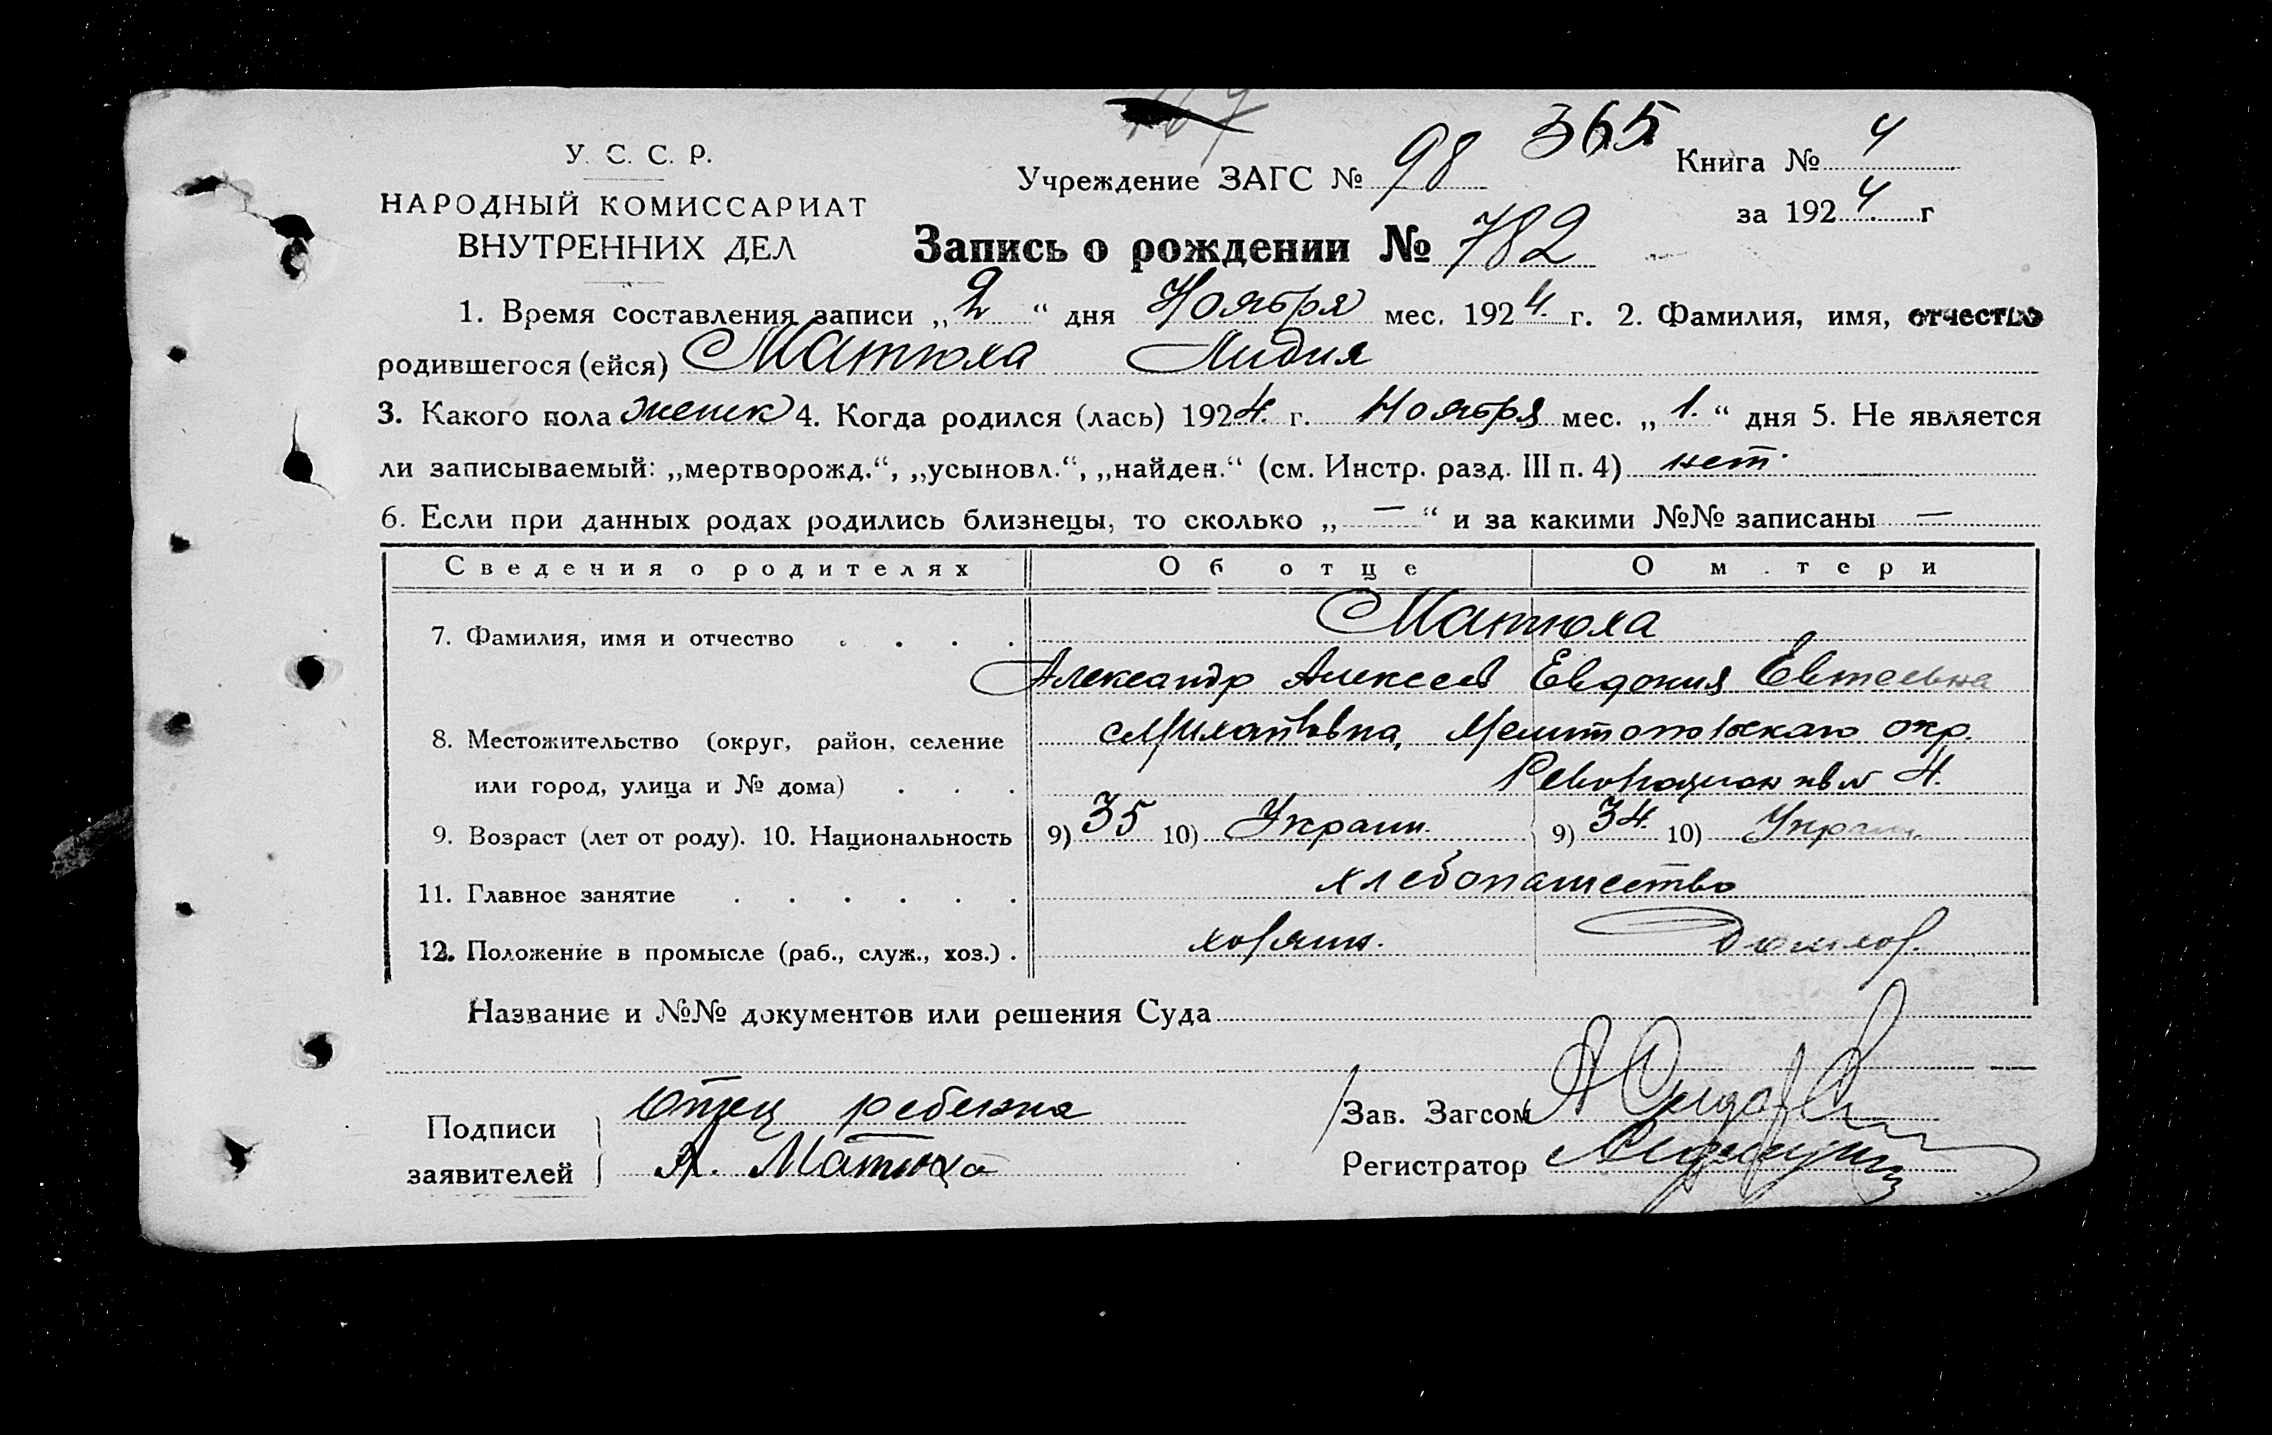 365
У. С. С. Р.
НАРОДНЫЙ КОМИССАРИАТ
ВНУТРЕННИХ ДЕЛ
Учреждение ЗАГС № 98
Книга № 4
за 1924 г
Запись о рождении № 782
1. Время составления записи „2“ дня Ноября мес. 1924. г. 2. Фамилия, имя, отчество
родившегося (ейся) Матюха Лидия
3. Какого пола женск 4. Когда родился (лась) 1924. г. Ноября мес. „1.“ дня 5. Не является
ли записываемый: „мертворожд.“, „усыновл.“, „найден.“ (см. Инстр. разд. III п. 4) нет.
6. Если при данных родах родились близнецы, то сколько „—“ и за какими №№ записаны —
Сведения о родителях Об отце О м.тери
7. Фамилия, имя и отчество Матюха
Александр Алексеев Евдокия Евтеевна
8. Местожительство (округ, район, селение Михайловка, Мелитопольскаго окр.
или город, улица и № дома) 4.
9. Возраст (лет от роду). 10. Национальность 9) 35 10) Украин. 9) 34. 10) Украин.
11. Главное занятие хлебопашество
12. Положение в промысле (раб., служ., хоз.) хозяин. домхоз.
Название и №№ документов или решения Суда
Подписи заявителей
Отец ребенка
А. Матюха
Зав. Загсом
Регистратор